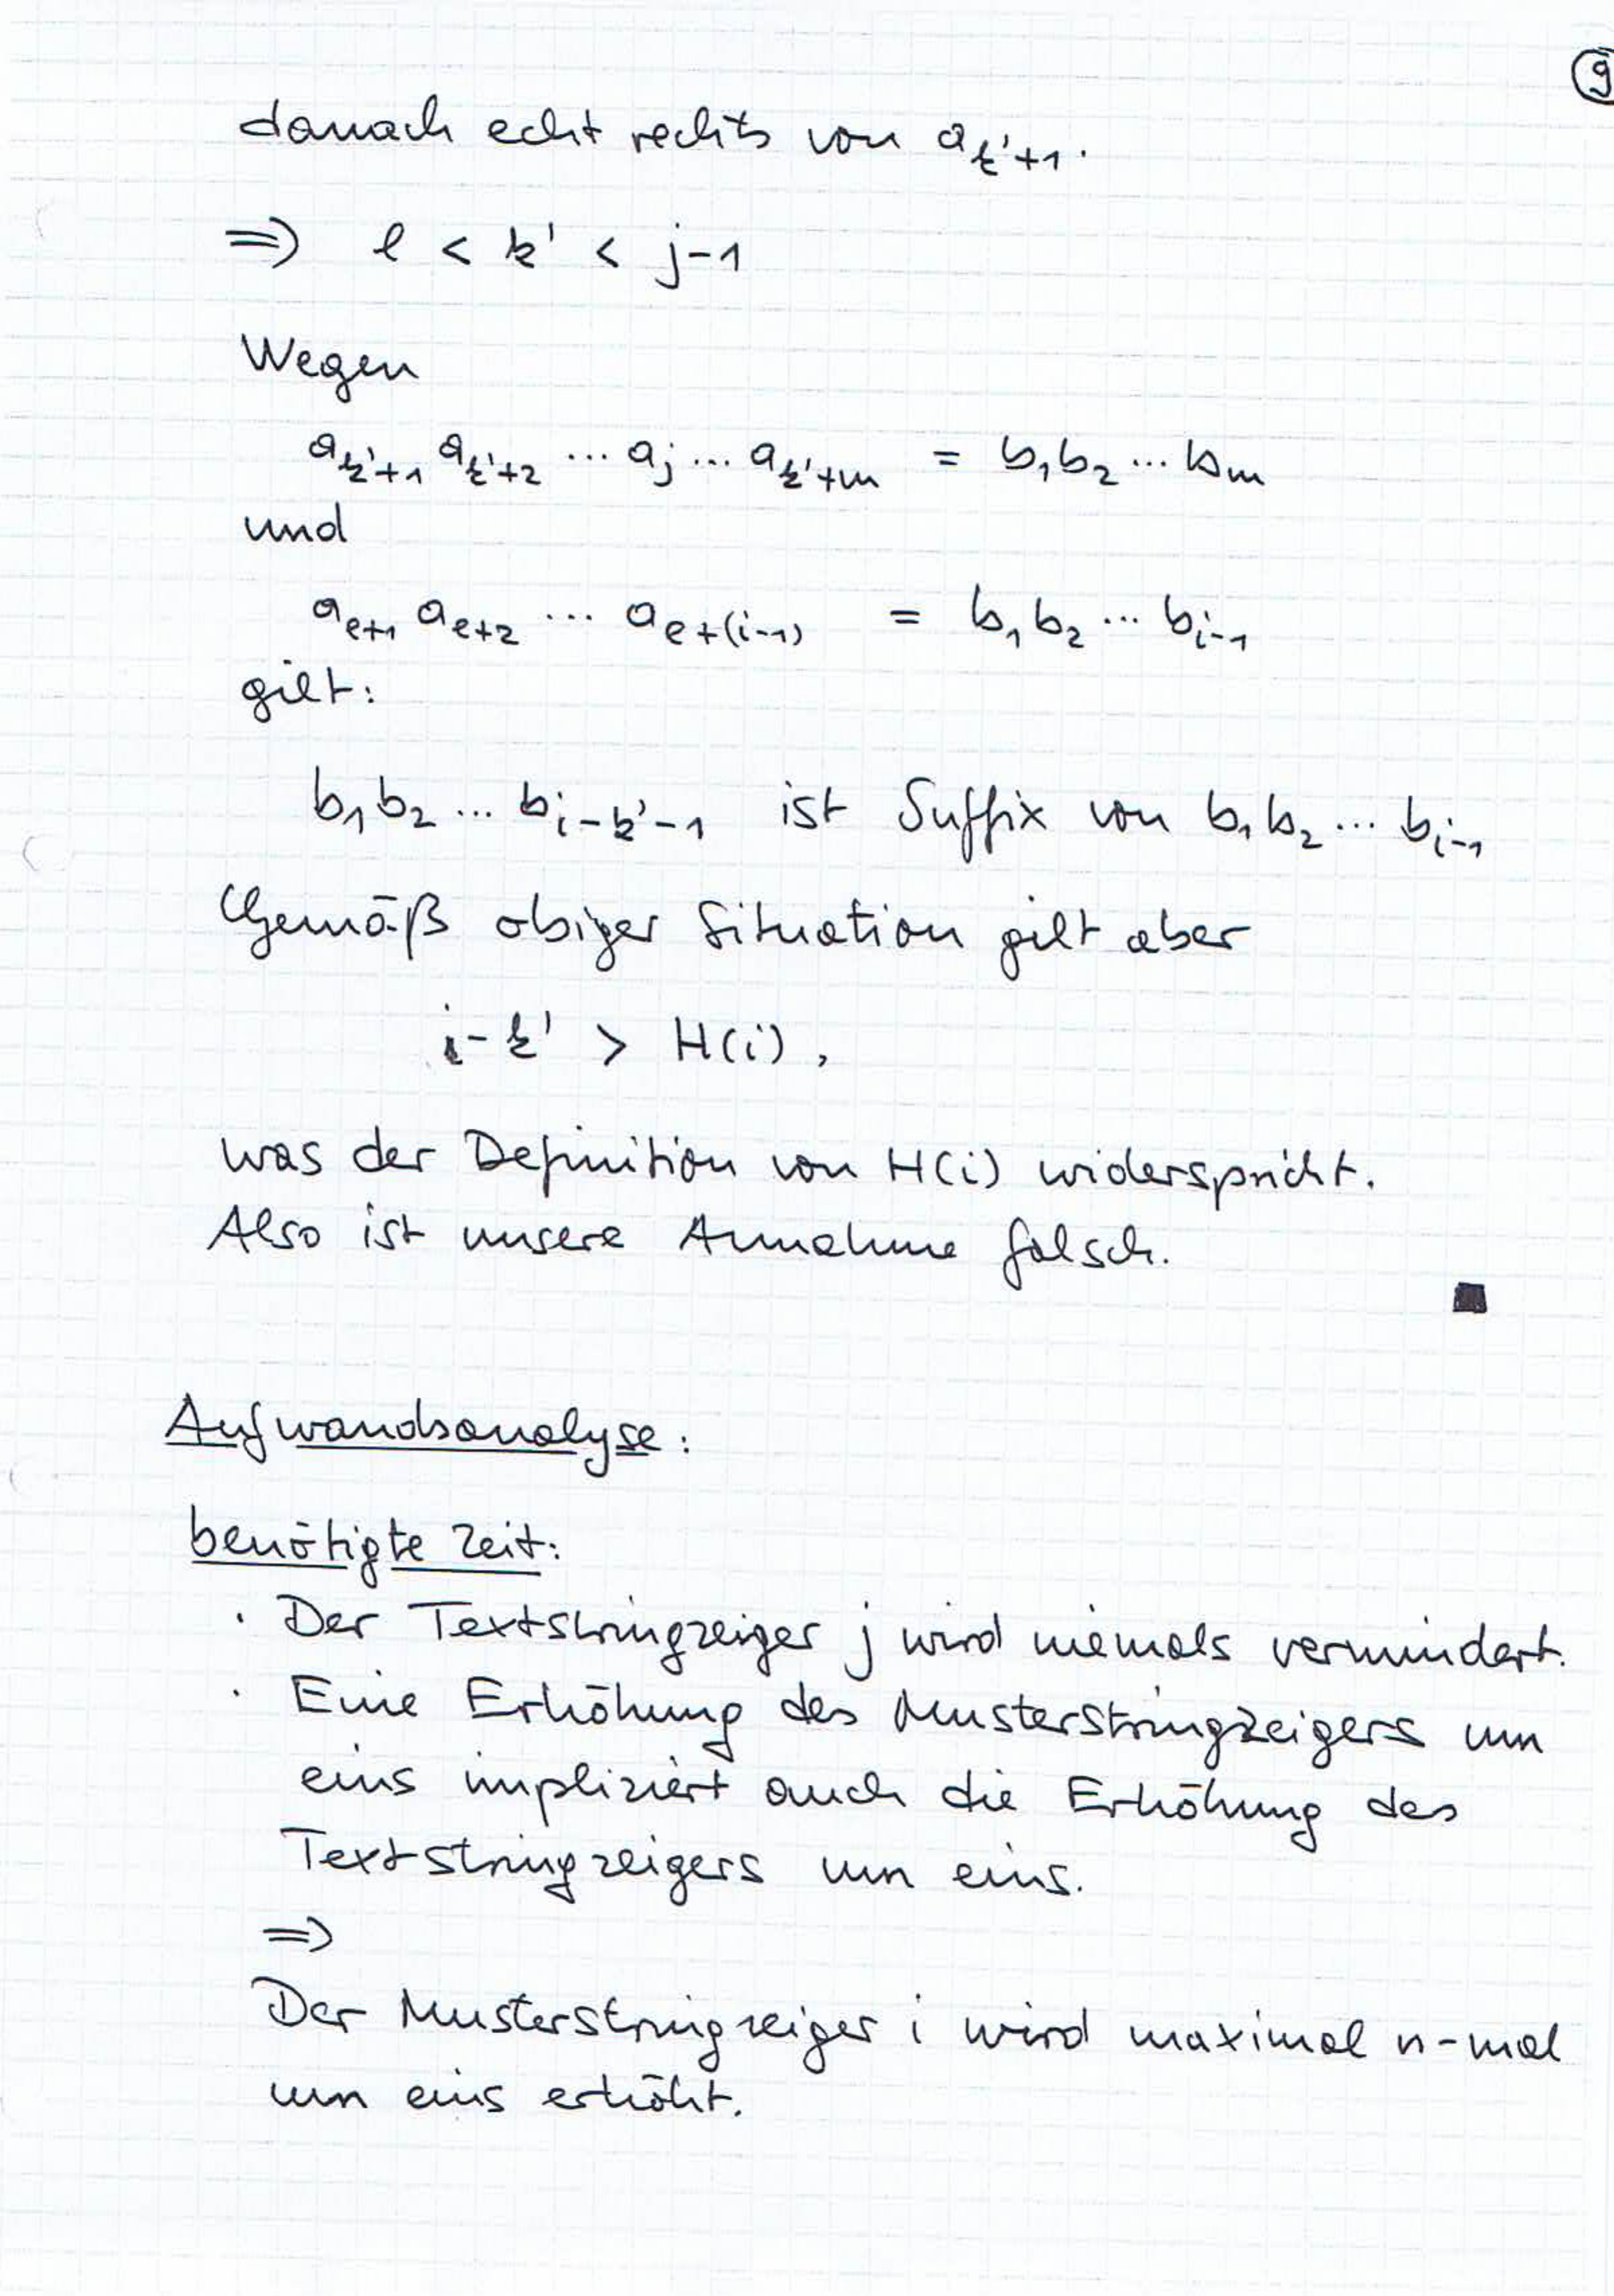 9
danach echt rechts von a_{k'+1}.
⇒ l < k' < j-1
Wegen
a_{k'+1} a_{k'+2} ... a_j ... a_{k'+m} = b_1 b_2 ... b_m
und
a_{l+1} a_{l+2} ... a_{l+(i-1)} = b_1 b_2 ... b_{i-1}
gilt:
b_1 b_2 ... b_{i-k'-1} ist Suffix von b_1 b_2 ... b_{i-1}
Gemäß obiger Situation gilt aber
i-k' > H(i),
was der Definition von H(i) widerspricht.
Also ist unsere Annahme falsch.
■
Aufwandsanalyse:
benötigte Zeit:
· Der Textstringzeiger j wird niemals vermindert.
· Eine Erhöhung des Musterstringzeigers um
eins impliziert auch die Erhöhung des
Textstringzeigers um eins.
⇒
Der Musterstringzeiger i wird maximal n-mal
um eins erhöht.